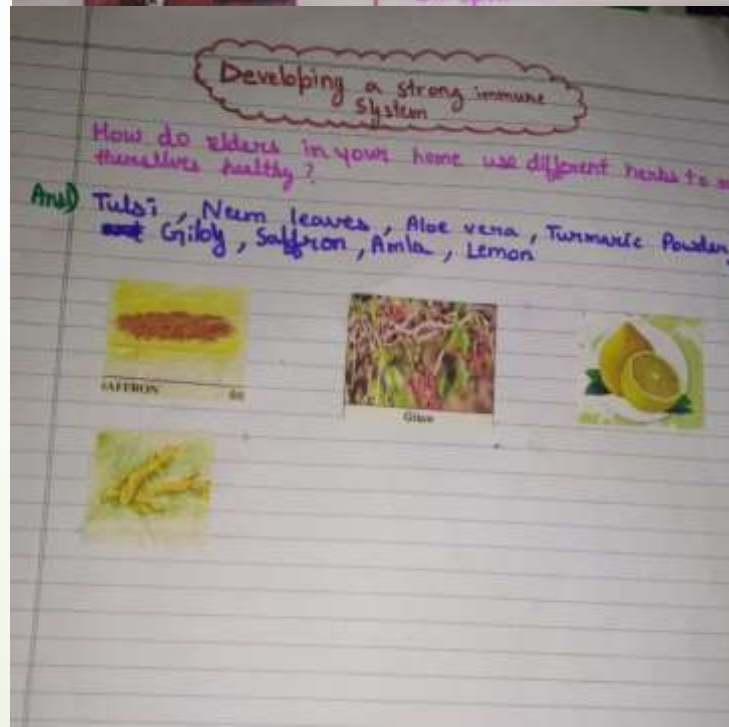 Developing a strong immune
System
How do elders in your home use different herbs to
themselves healthy?
Ans) Tulsi, Neem leaves, Aloe vera, Turmeric Powder,
Giloy, Saffron, Amla, Lemon
SAFFRON